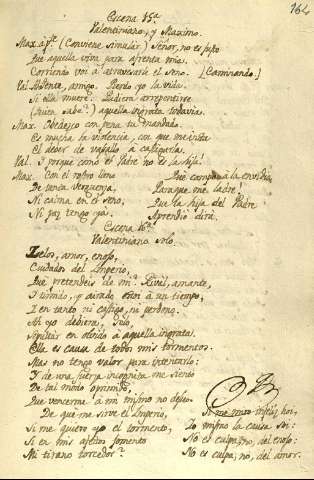 164
Escena 15ª
Valentiniano, y Maximo.
Max. à pte. (Conviene simular) Señor, no es justo
Que aquella viva para afrenta mia.
Corriendo voi à atravesarla el seno. (Caminando)
Val. Detente, amigo. Pierdo yo la vida.
Si ella muere. Pudiera arrepentirse
(Quien sabe?) aquella ingrata todavia.
Max. Obedezco con pena tu mandado.
Es mucha la violencia, con que
El deber de vasallo à castigarla.
Val. I porque como el Padre no es la hija!
Max. Con el rostro
De tanta verguenza,
Ni calma en el seno,
Ni paz tengo ya.
Que campo à la envidia
Paraque me ladre!
Que la hija del Padre
Aprendiò dirà.
Escena 16ª
Valentiniano solo.
Zelos, amor, enojo,
Cuidados del Imperio,
Que pretendeis de mi? Rivál, amante,
I timido, y airado soi à un tiempo,
I en tanto ni castigo, ni perdono.
Ah yo debiera, solo,
Sepultar en olvido à aquella ingrata.
Ella es causa de todos mis tormentos.
Mas no tengo valor para intentarlo:
I de una fuerza incognita me siento
De tal modo oprimido,
Que vencerme à mi mismo no deseo.
De que me sirve el Imperio,
Si me quiero yo el tormento,
Si en mis afectos fomento
Mi tirano torcedor?
Si me miro infeliz, hoi,
Yo mismo la causa soi:
No es culpa, no, del enojo:
No es culpa, no, del amor.